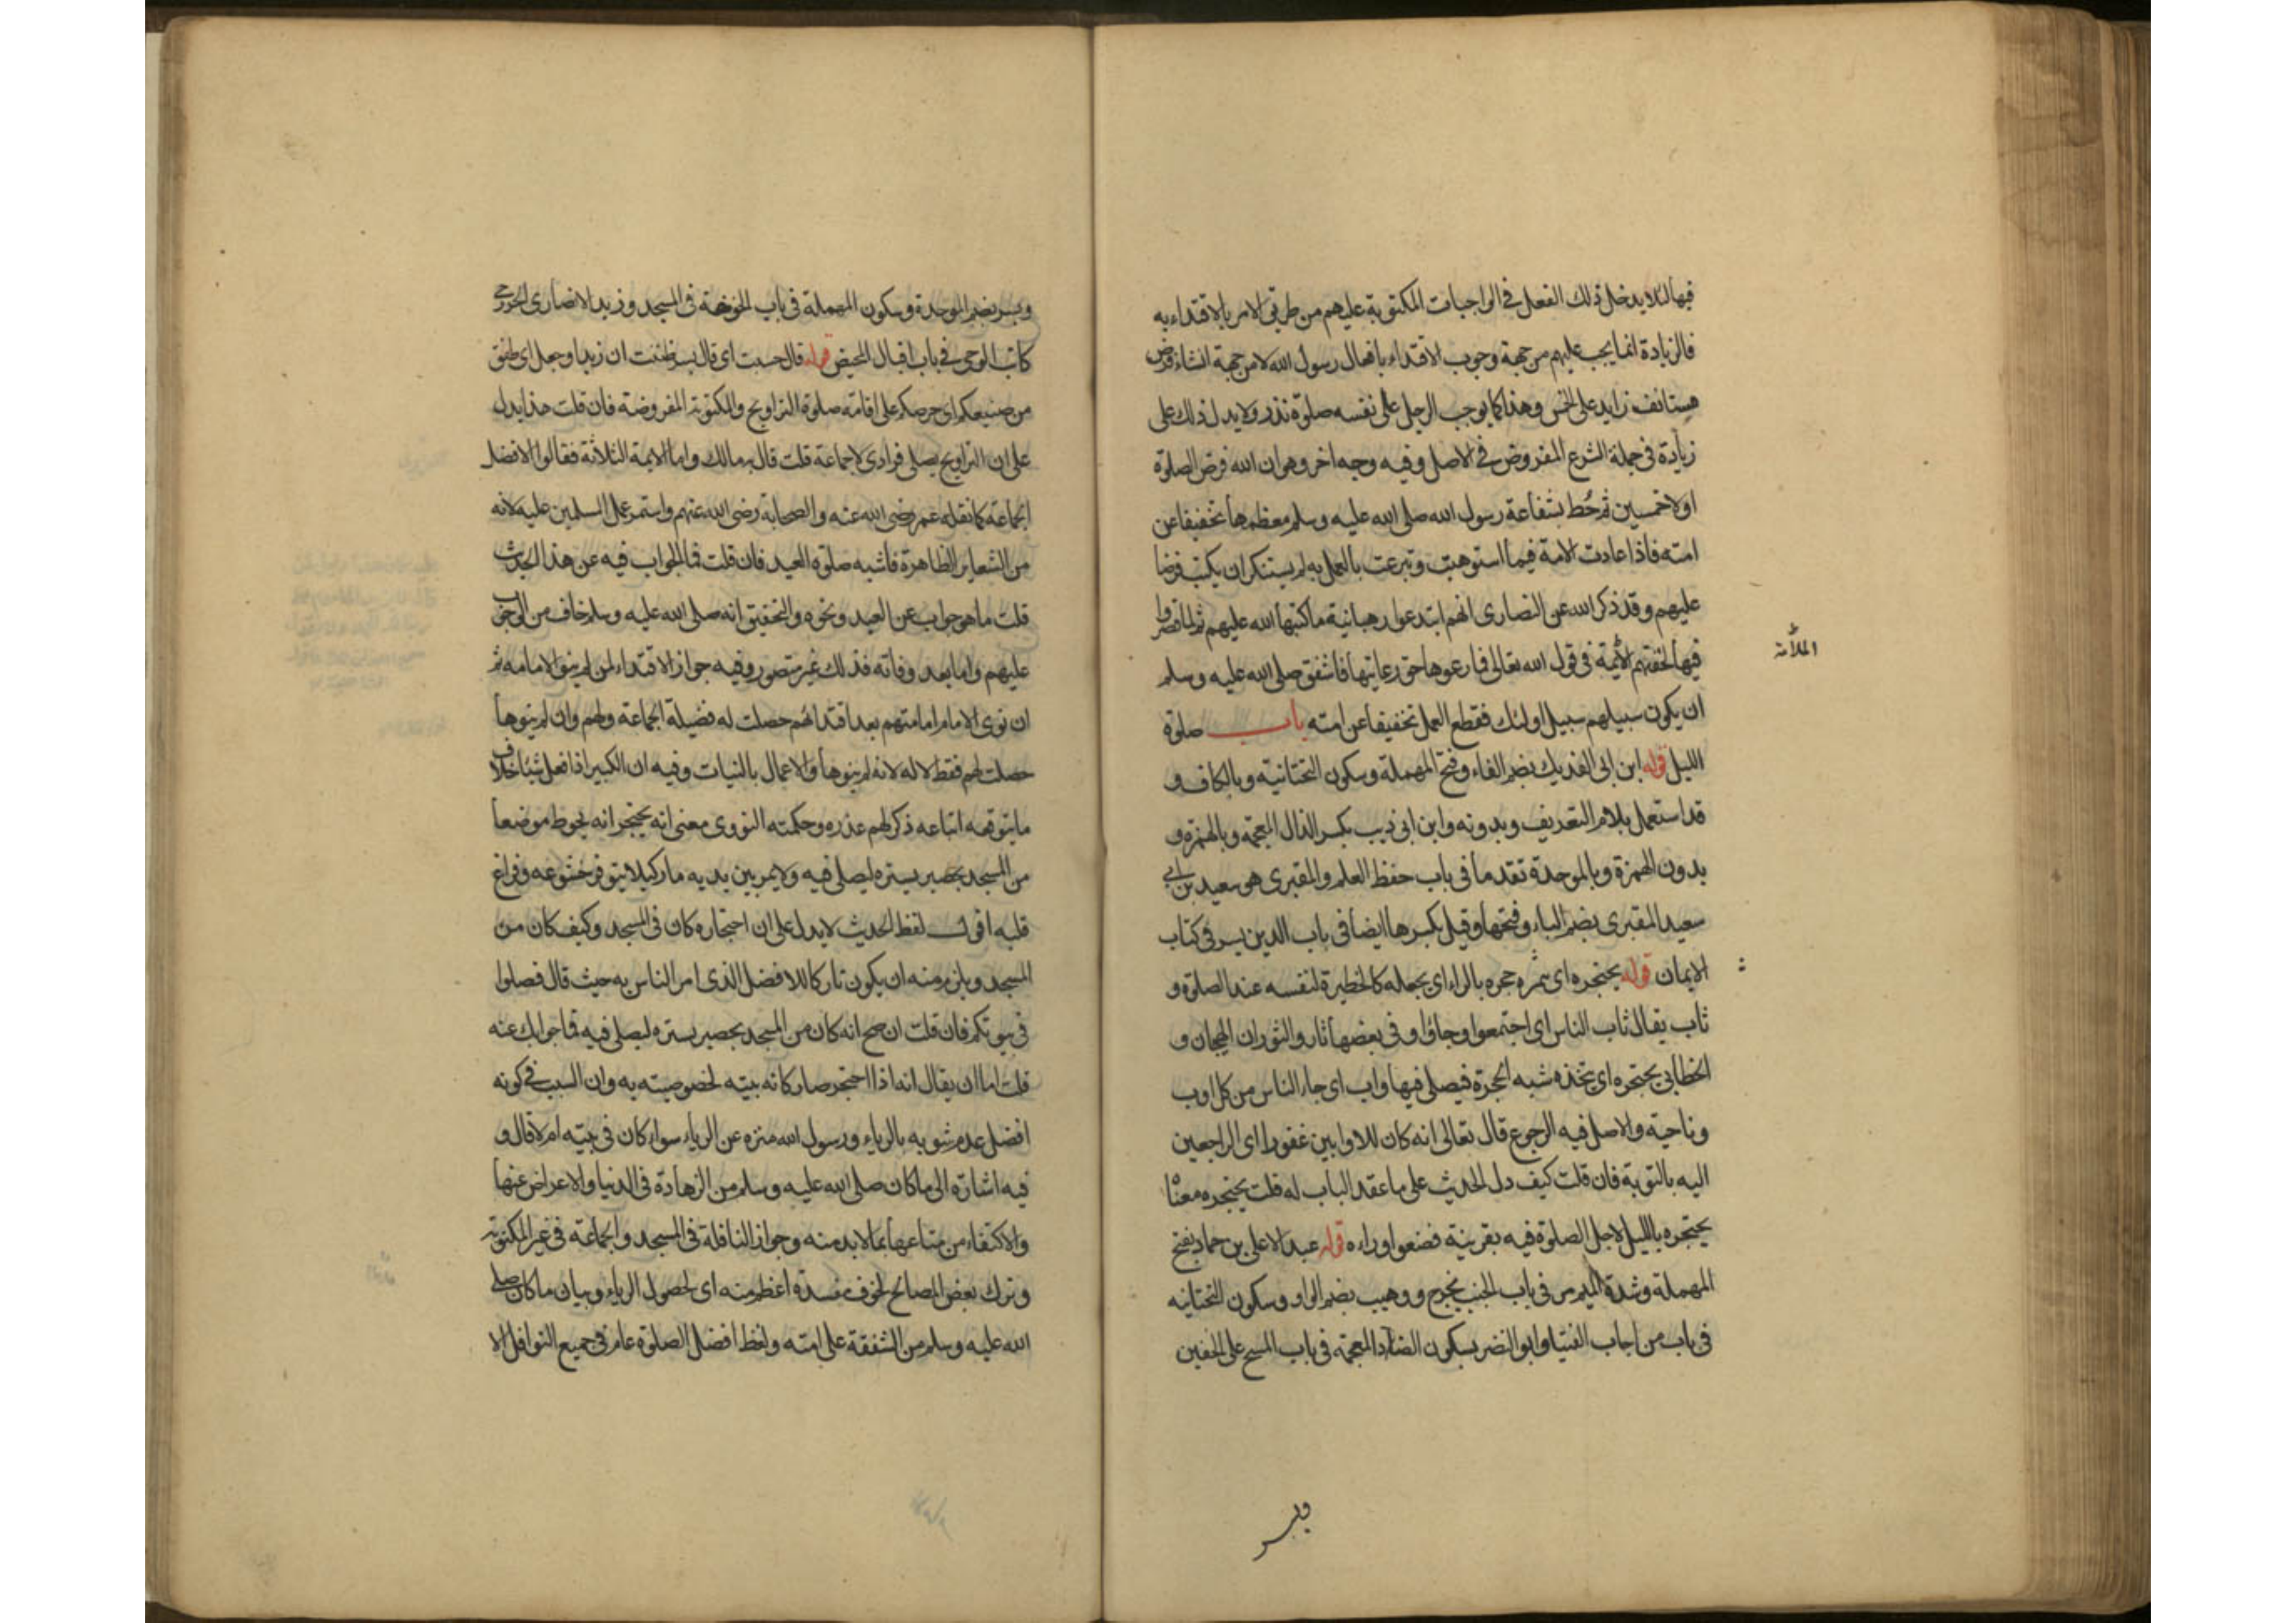 فيها لئلا يدخل ذلك الفعل في الواجبات المكتوبة عليهم من طريق الامر بالاقتداء به
فالزيادة انما يجب عليهم من جهة وجوب الاقتداء بافعال رسول الله لا من جهة انشاء فرض
مستانف زايد على الخمس وهذا كما يوجب الرجل على نفسه صلوة نذر ولا يدل ذلك على
زيادة في جملة الشرع المفروض في الاصل وفيه وجه اخر وهو ان الله فرض الصلوة
اولا خمسين ثم حُط بشفاعة رسول الله صلى الله عليه وسلم معظمها تخفيفا عن
امته فاذا عادت الامة فيما استوهبت وتبرعت بالعمل به لم يستنكر ان يكتب فرضا
عليهم وقد ذكر الله عن النصارى انهم ابتدعوا رهبانية ما كتبها الله عليهم ثم لما قصروا
فيها لحقتهم الأئمة في قول الله تعالى فما رعوها حق رعايتها فاشفق صلى الله عليه وسلم
الملأمة
ان يكون سبيلهم سبيل اولئك فقطع العمل تخفيفا عن امته باب صلوة
الليل قوله ابن ابى الفديك بضم الفاء وفتح المهملة وسكون التحتانية وبالكاف و
قد استعمل بلام التعريف وبدونه وابن ابى ذيب بكسر الذال المعجمة وبالهمزة و
بدون الهمزة وبالموحدة تقدما في باب حفظ العلم والمقبرى هو سعيد بن ابي
سعيد المقبرى بضم الباء وفتحها وقيل بكسرها ايضا في باب الدين يسر في كتاب
الايمان قوله يحتجره اى حجره بالراء اى يجعله كالحظيرة لنفسه عند الصلوة و
ثاب يقال ثاب الناس اى اجتمعوا وجاؤا وفى بعضها ثار والثوران الهيجان و
الخطابى يحتجره اى يتخذه شبه الحجرة فيصلى فيها واب اى جاء الناس من كل اوب
وناحية والاصل فيه الرجوع قال تعالى انه كان للاوابين غفورا اى الراجعين
اليه بالتوبة فان قلت كيف دل الحديث على ما عقد الباب له قلت يحتجره معناه
يحتجره بالليل لاجل الصلوة فيه بقرينة فصفوا وراءه قوله عبد الاعلى بن حماد بفتح
المهملة وشدة الميم مر في باب الجنب يخرج ووهيب بضم الواو وسكون التحتانيه
في باب من اجاب الفتيا وابو النضر بسكون الضاد المعجمة في باب المسح على الخفين
وبسر
وبسر بضم الموحدة وسكون المهملة في باب الخوخة في المسجد وزيد الانصارى الخزرجى
كاتب الوحى في باب اقبال المحيض قوله قال حسبت اى قال بسر ظننت ان زيدا وجعل اى طفق
من صنيعكم اى حرصكم على اقامة صلوة التراويح والمكتوبة المفروضة فان قلت هذا يدل
على ان التراويح يصلى فرادى لا جماعة قلت قال به مالك واما الايمة الثلاثة فقالوا الافضل
الجماعة كما نقله عمر رضى الله عنه والصحابة رضى الله عنهم واستمر عمل المسلمين عليه لانه
من الشعاير الظاهرة فاشبه صلوة العيد فان قلت فما الجواب فيه عن هذا الحديث
قلت ما هو جواب عن العيد ونحوه والتحقيق انه صلى الله عليه وسلم خاف من الوجوب
عليهم واما بعد وفاته فذلك غير متصور وفيه جواز الاقتداء لمن لم ينو الامامه ثم
ان نوى الامام امامتهم بعد اقتدائهم حصلت له فضيلة الجماعة ولهم وان لم ينوها
حصلت لهم فقط لا له لانه لم ينوها والاعمال بالنيات وفيه ان الكبير اذا فعل شيئا خلاف
ما يتوقعه اتباعه ذكر لهم عذره وحكمته النووى معنى انه يحتجر انه يحوط موضعا
من المسجد بحصير يستره ليصلى فيه ولا يمر بين يديه مار كيلا يتوفر خشوعه وفراغ
قلبه اقول لفظ الحديث لا يدل على ان احتجاره كان في المسجد وكيف كان من
المسجد ويلزم منه ان يكون تاركا للافضل الذى امر الناس به حيث قال فصلوا
في بيوتكم فان قلت ان صح انه كان من المسجد بحصير يستره ليصلى فيه فما جوابك عنه
قلت اما ان يقال انه اذا احتجر صار كانه بيته لخصوصيته به وان السبب في كونه
افضل عدم شوبه بالرياء ورسول الله منزه عن الرياء سواء كان في بيته ام لا قال و
فيه اشارة الى ما كان صلى الله عليه وسلم من الزهادة في الدنيا والاعراض عنها
والاكتفاء من متاعها بما لابد منه وجواز النافلة في المسجد والجماعة في غير المكتوبة
وترك بعض المصالح لخوف مفسدة اعظم منه اى لحصول الرياء وبيان ما كان صلى
الله عليه وسلم من الشفقة على امته ولفظ افضل الصلوة عام في جميع النوافل الا